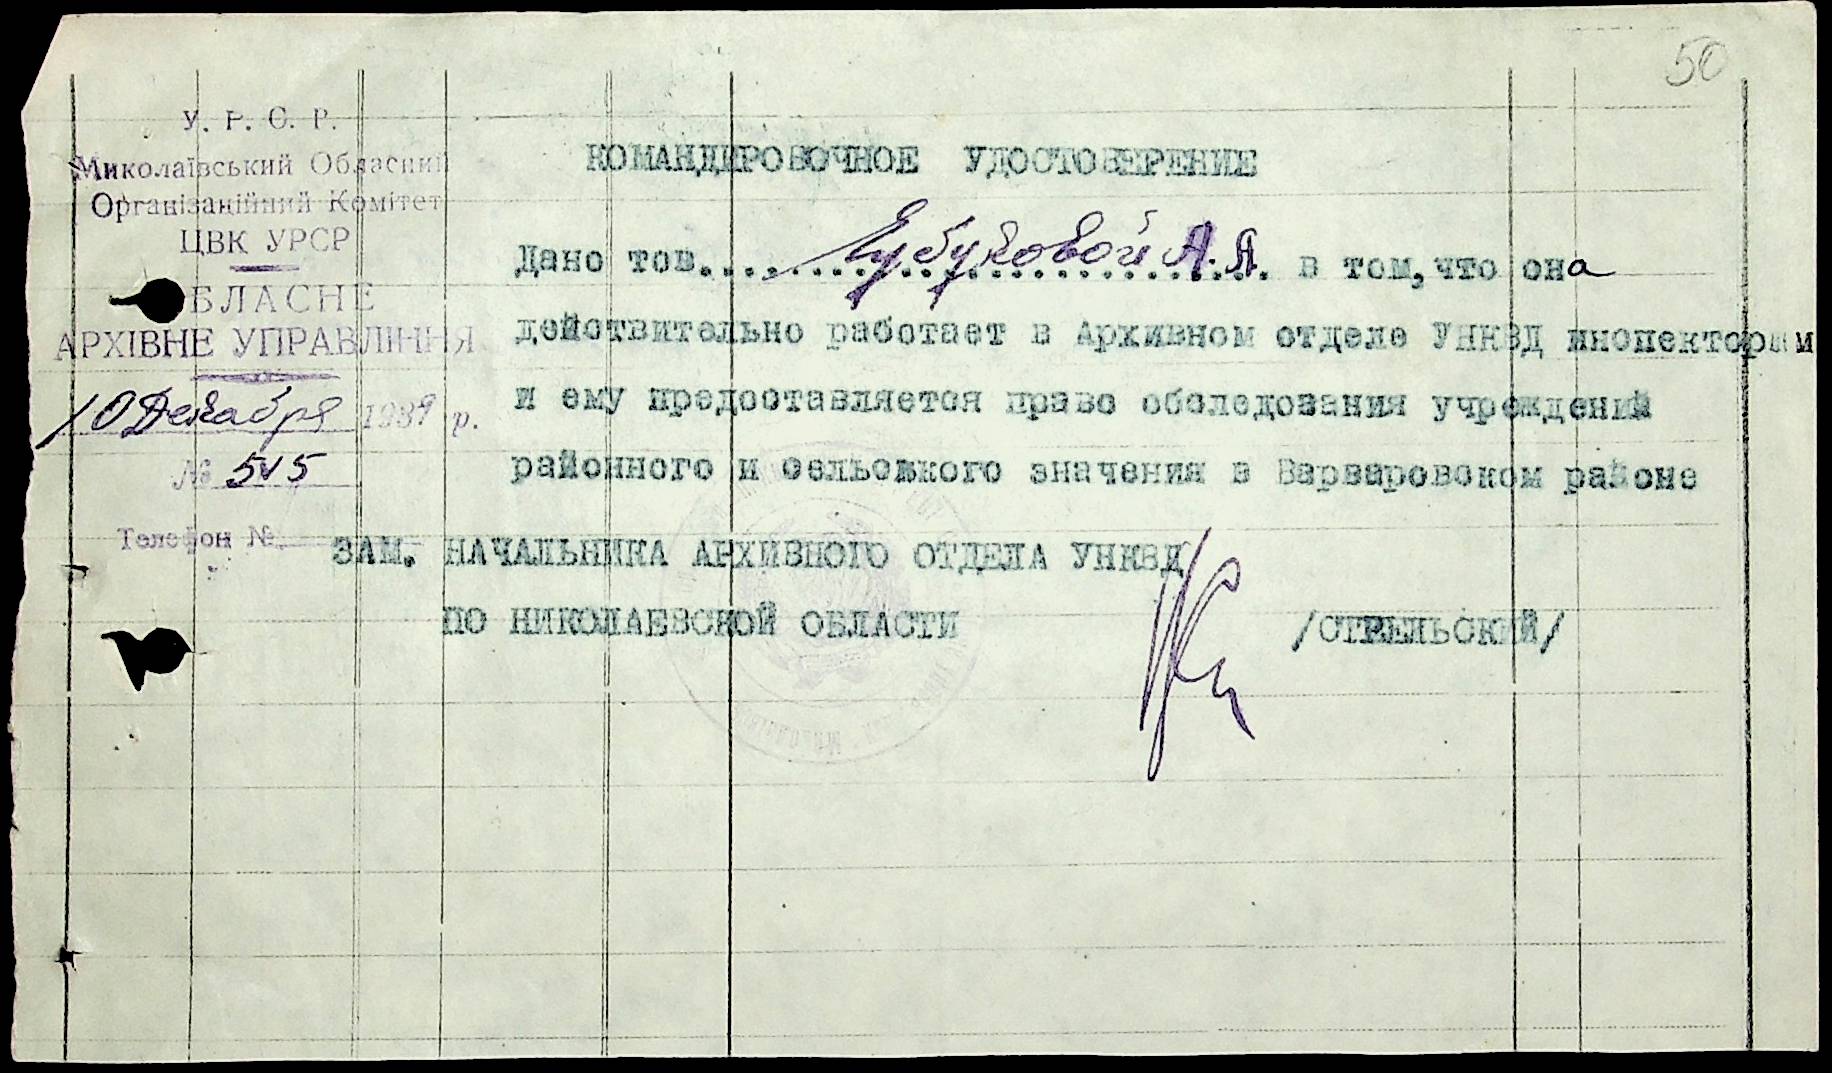 50
У. Р. С. Р.
Миколаївський Обласний
Організаційний Комітет
ЦВК УРСР
ОБЛАСНЕ
АРХІВНЕ УПРАВЛІННЯ
10 Декабря 1939 р.
№ 515
Телефон №
КОМАНДИРОВОЧНОЕ УДОСТОВЕРЕНИЕ
Дано тов. Чубуковой А. А. в том, что она
действительно работает в Архивном отделе УНКВД инспектором
и ему предоставляется право обследования учреждений
районного и сельского значения в Варваровском районе
ЗАМ. НАЧАЛЬНИКА АРХИВНОГО ОТДЕЛА УНКВД
ПО НИКОЛАЕВСКОЙ ОБЛАСТИ /СТРЕЛЬСКИЙ/